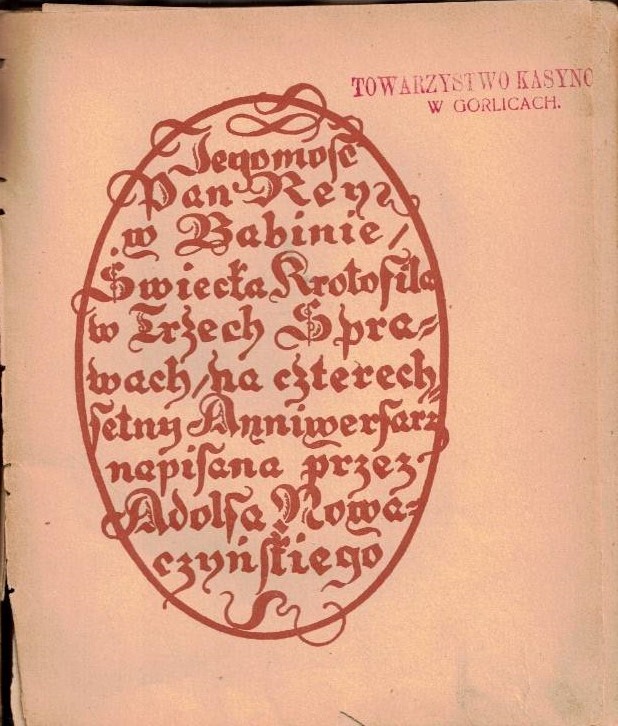 TOWARZYSTWO KASYNO
W GORLICACH.
Jegomość
Pan Rey
w Babinie /
Świecka Krotofila
w Trzech Spra=
wach / na czterech=
setny Anniwerſarz
napiſana przez
Adolfa Nowa=
czyńſkiego